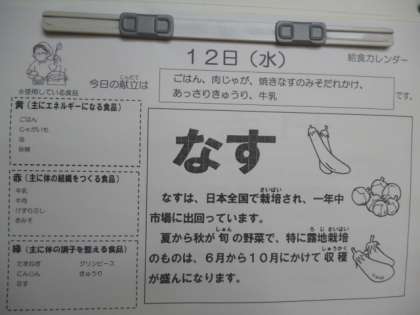 12日（水）
給食カレンダー
今日の献立は
こんだて
ごはん、肉じゃが、焼きなすのみそだれかけ、
あっさりきゅうり、牛乳
です。
※使用している食品
黄（主にエネルギーになる食品）
ごはん
じゃがいも
油
砂糖
赤（主に体の組織をつくる食品）
牛乳
牛肉
けずりぶし
赤みそ
緑（主に体の調子を整える食品）
たまねぎ グリンピース
にんじん きゅうり
なす
なす
さいばい
なすは、日本全国で栽培され、一年中
市場に出回っています。
しゅん ろじさいばい
夏から秋が旬の野菜で、特に露地栽培
しゅうかく
のものは、６月から１０月にかけて収穫
が盛んになります。